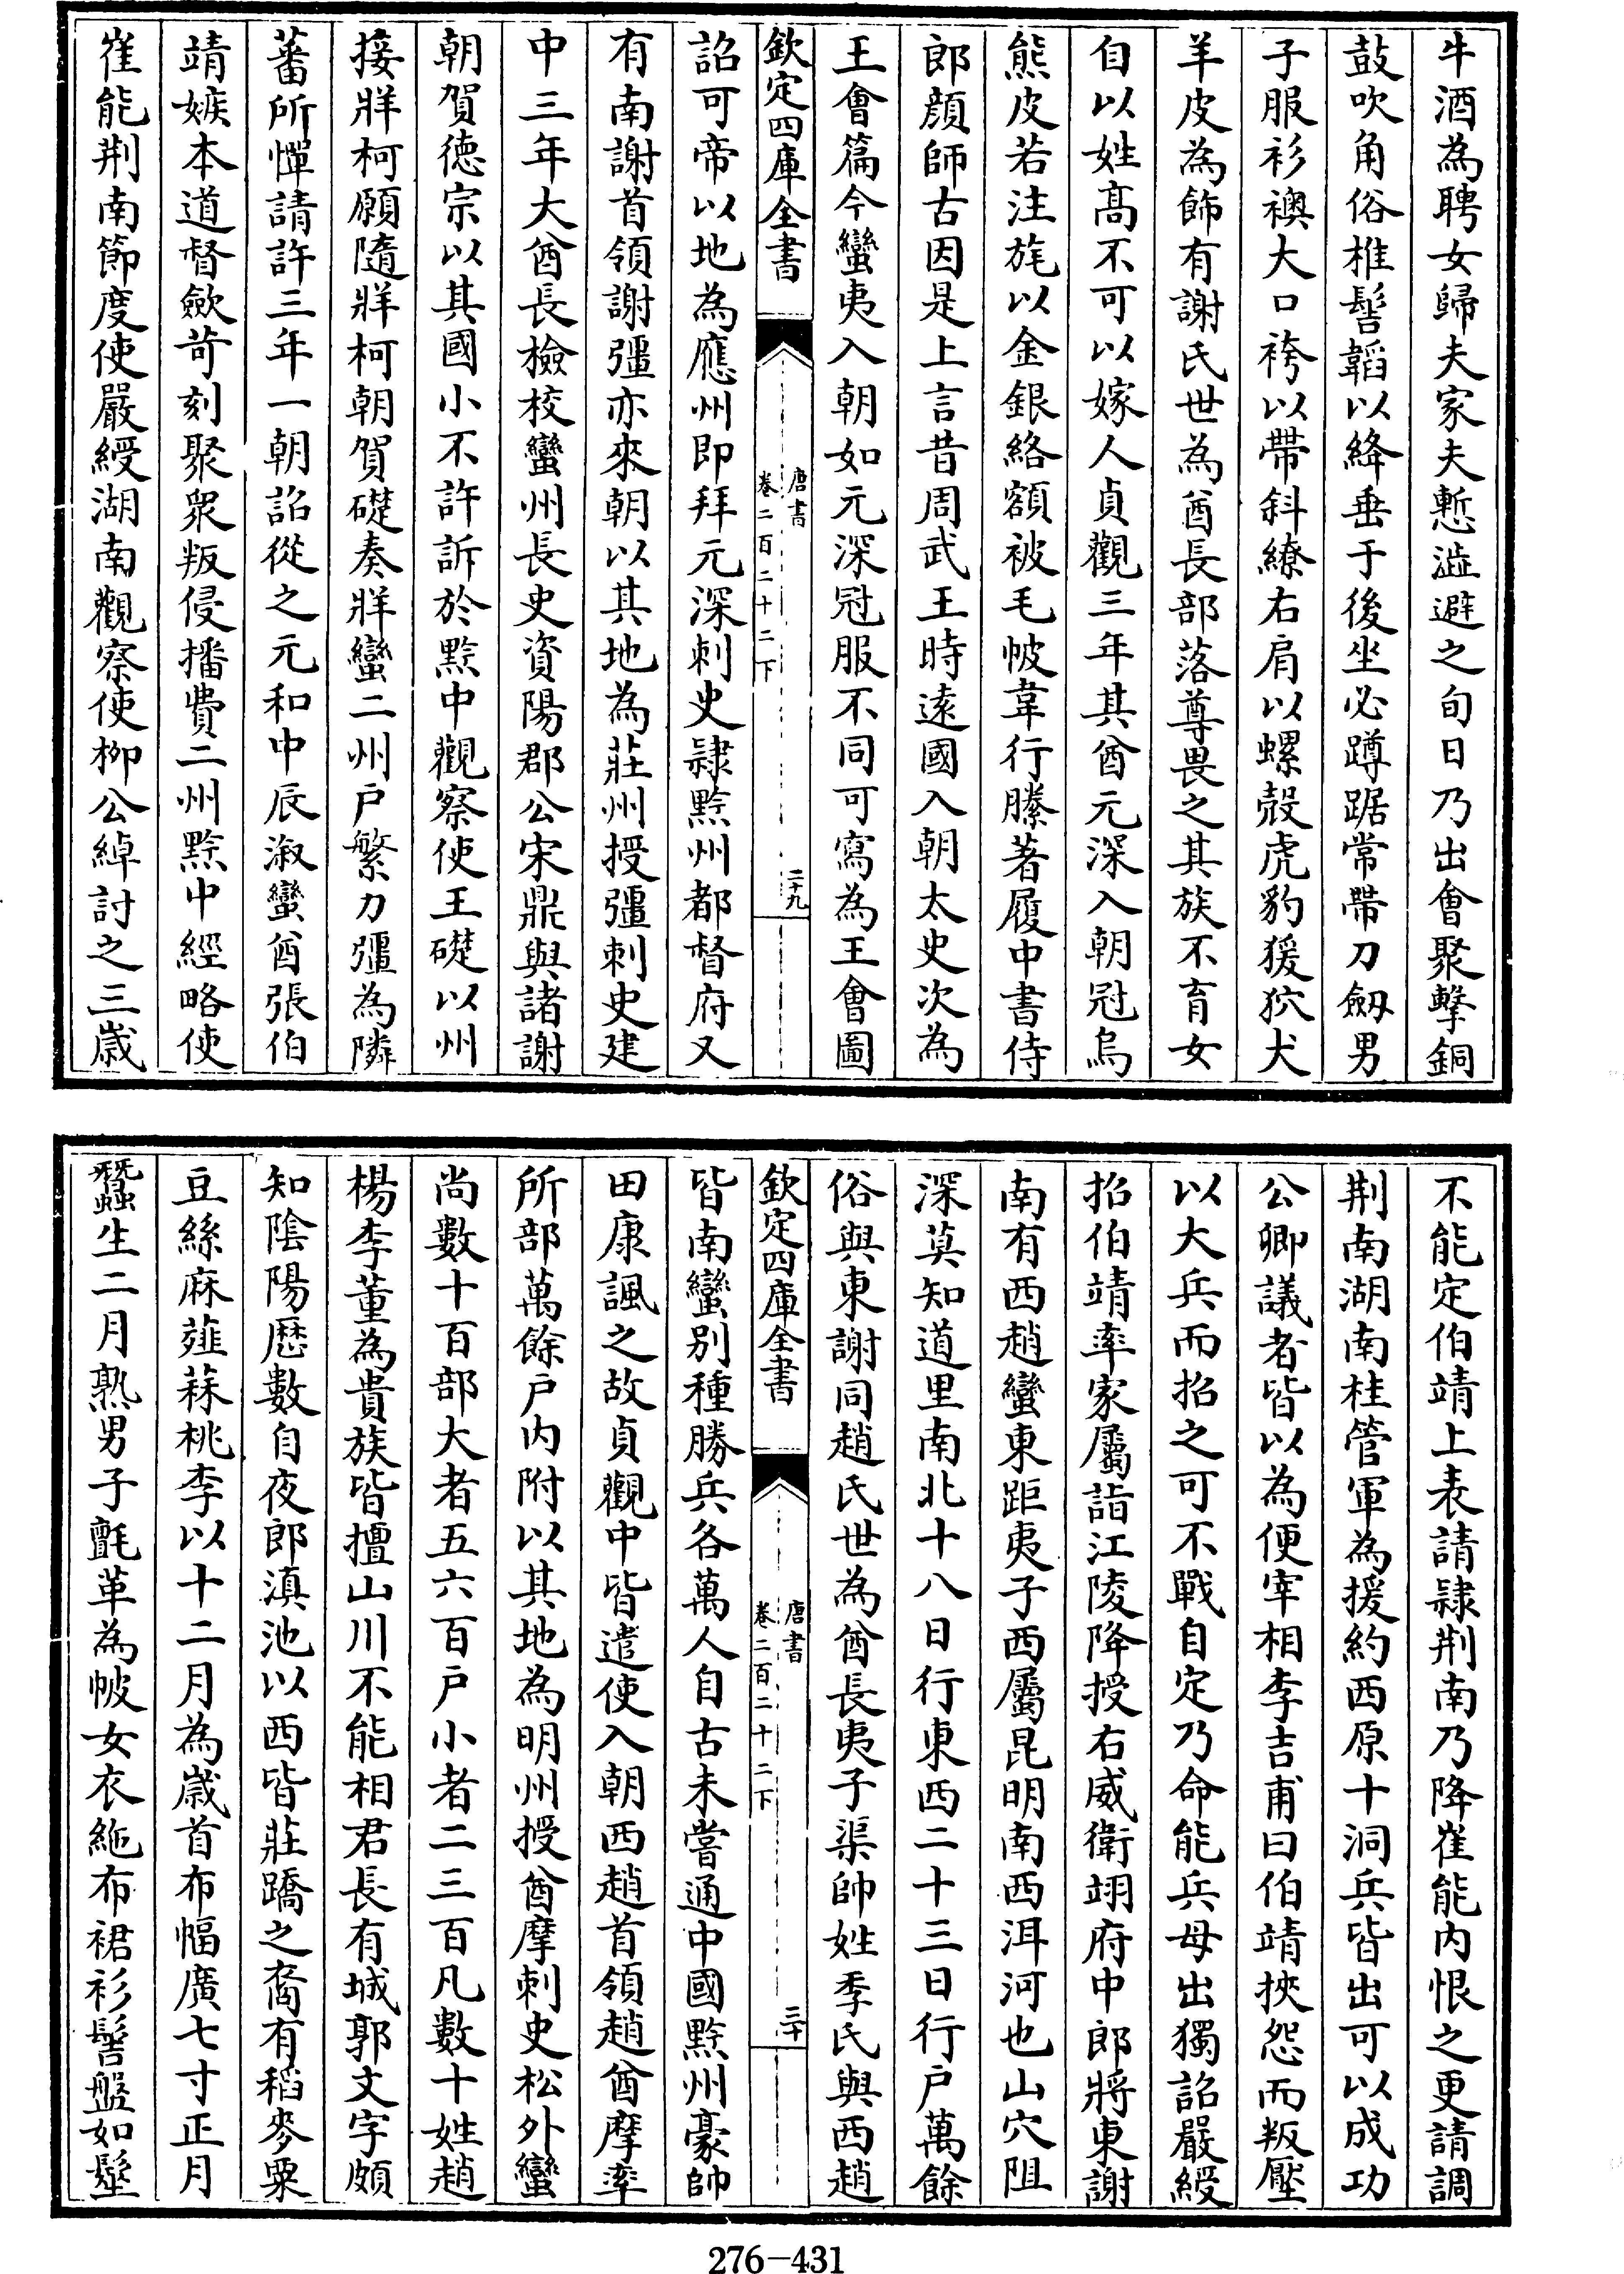 牛酒為聘女歸夫家夫慙澁避之旬日乃出會聚擊銅
鼓吹角俗椎髻韜以絳垂于後坐必蹲踞常帶刀劒男
子服衫襖大口袴以帶斜繚右肩以螺殻虎豹猨狖犬
羊皮為飾有謝氏世為酋長部落尊畏之其族不育女
自以姓髙不可以嫁人貞觀三年其酋元深入朝冠烏
熊皮若注旄以金銀絡額被毛帔韋行縢著履中書侍
郎顔師古因是上言昔周武王時逺國入朝太史次為
王會篇今蠻夷入朝如元深冠服不同可寫為王會圖
欽定四庫全書
唐書
卷二百二十二下
二十九
詔可帝以地為應州即拜元深刺史隷黔州都督府又
有南謝首領謝彊亦來朝以其地為莊州授彊刺史建
中三年大酋長檢校蠻州長史資陽郡公宋鼎與諸謝
朝賀德宗以其國小不許訴於黔中觀察使王礎以州
接牂柯願隨牂柯朝賀礎奏牂蠻二州户繁力彊為隣
蕃所憚請許三年一朝詔從之元和中辰溆蠻酋張伯
靖嫉本道督歛苛刻聚衆叛侵播費二州黔中經略使
崔能荆南節度使嚴綬湖南觀察使柳公綽討之三歲
不能定伯靖上表請隷荆南乃降崔能内恨之更請調
荆南湖南桂管軍為援約西原十洞兵皆出可以成功
公卿議者皆以為便宰相李吉甫曰伯靖挾怨而叛壓
以大兵而招之可不戰自定乃命能兵毋出獨詔嚴綬
招伯靖率家屬詣江陵降授右威衛翊府中郎將東謝
南有西趙蠻東距夷子西屬昆明南西洱河也山穴阻
深莫知道里南北十八日行東西二十三日行户萬餘
俗與東謝同趙氏世為酋長夷子渠帥姓季氏與西趙
欽定四庫全書
唐書
卷二百二十二下
三十
皆南蠻别種勝兵各萬人自古未嘗通中國黔州豪帥
田康諷之故貞觀中皆遣使入朝西趙首領趙酋摩率
所部萬餘户内附以其地為明州授酋摩刺史松外蠻
尚數十百部大者五六百户小者二三百凡數十姓趙
楊李董為貴族皆擅山川不能相君長有城郭文字頗
知隂陽厯數自夜郎滇池以西皆莊蹻之裔有稻麥粟
豆絲麻薤蒜桃李以十二月為歲首布幅廣七寸正月
蠶生二月熟男子氈革為帔女衣絁布裙衫髻盤如髽
276-431